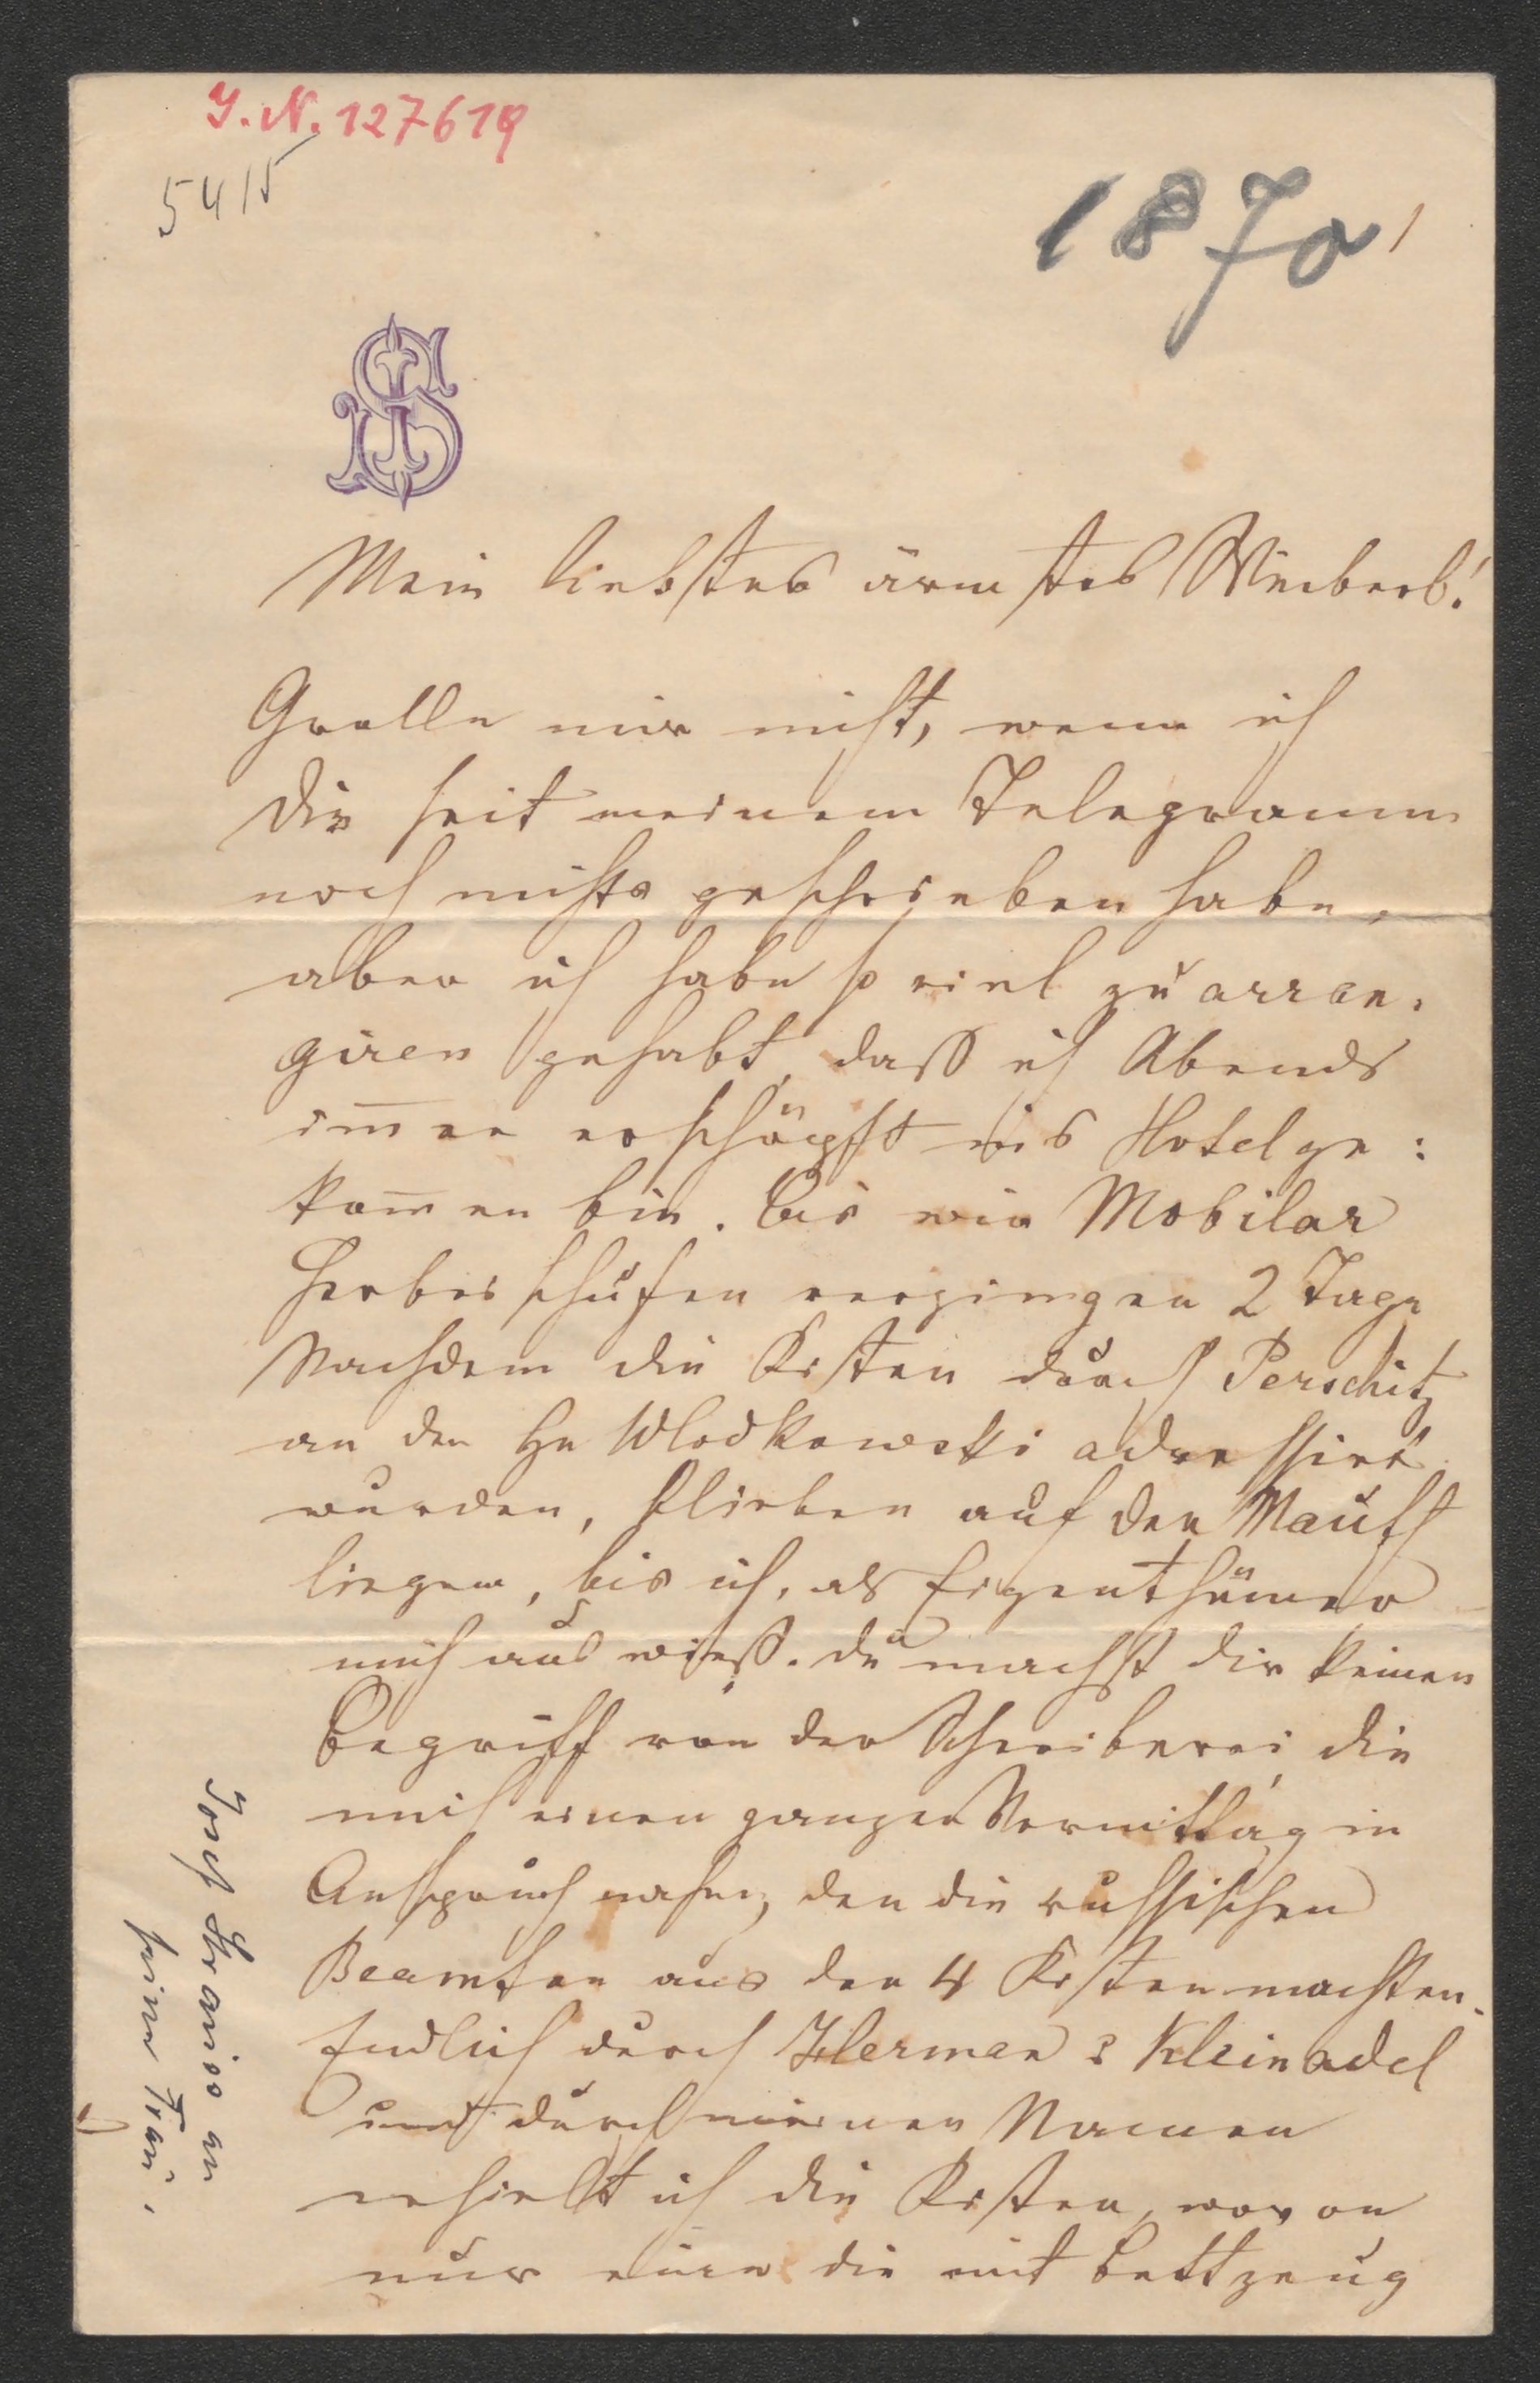 J. N. 127619
5415
1870 1
JS
Mein liebstes ärmstes Weiberl!
Grolle mir nicht, wenn ich
Dir seit meinem Telegramm
noch nichts geschrieben habe,
aber ich habe so viel zu arran-
giren gehabt, daß ich Abends
im̅er erschöpft ins Hotel ge:
kom̅en bin. Bis wir Mobilar
herbei schufen vergingen 2 Tage
Nachdem die Kisten durch Perschitz
an den Hn Wlodkowski adressirt
wurden, blieben auf der Mauth
liegen, bis ich, als Eigenthümer
mich aus wieß. Du machst dir keinen
Begriff von der Schreiberei, die
mich einen ganzen Vormittag in
Anspruch nahm, den die russischen
Beamten aus den 4 Kisten machten.
Endlich durch Herman & Kleinadel
und durch meinen Namen
erhielt ich die Kisten, wovon
nur eine die mit Bettzeug
Josef Strauss an
seine Frau.